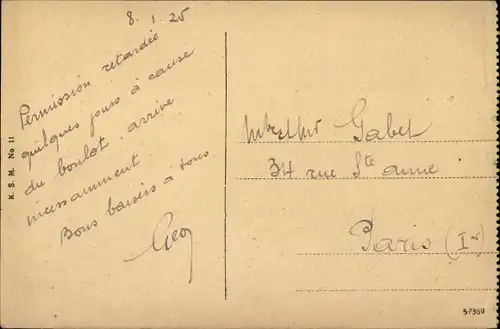 8.1.25
Permission retardée
quelques jours à cause
du boulot. arrive
incessamment
Bons baisers à tous
Geo
K. S. M. No 11
Gabet
34 rue Ste anne
Paris (Ier)
57360